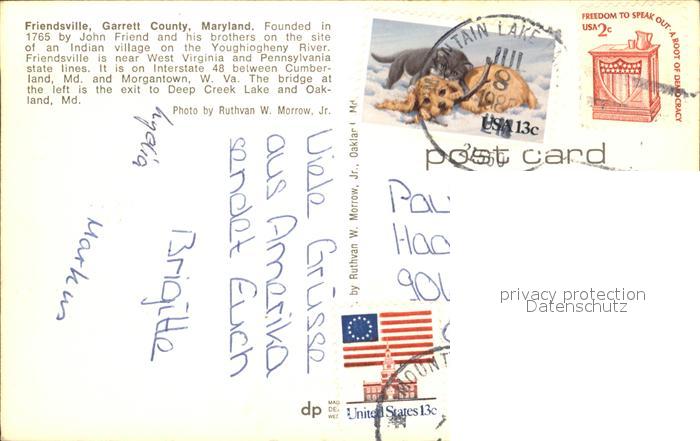 Friendsville, Garrett County, Maryland. Founded in
1765 by John Friend and his brothers on the site
of an Indian village on the Youghiogheny River.
Friendsville is near West Virginia and Pennsylvania
state lines. It is on Interstate 48 between Cumber-
land, Md. and Morgantown, W. Va. The bridge at
the left is the exit to Deep Creek Lake and Oak-
land, Md.
Photo by Ruthvan W. Morrow, Jr.
USA 13c
FREEDOM TO SPEAK OUT-A ROOT OF DEMOCRACY
USA 2c
MOUNTAIN LAKE
post card
Viele Grüsse
aus Amerika
sendet Euch
Brigitte
Markus
by Ruthvan W. Morrow, Jr., Oakland, Md
privacy protection
Datenschutz
MOUNT
United States 13c
dp